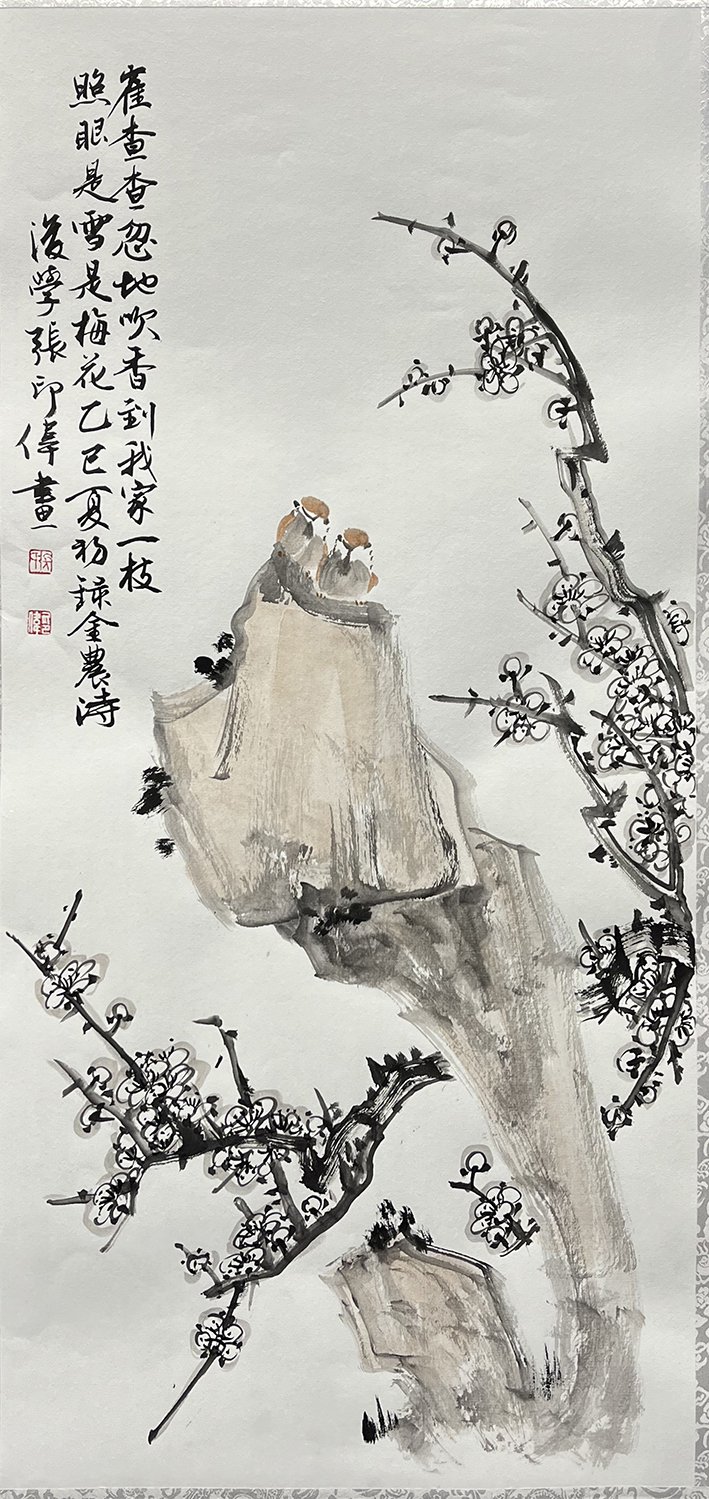 雀查查忽地吹香到我家一枝
照眼是雪是梅花乙巳夏初錄金農詩
後學張印偉畫